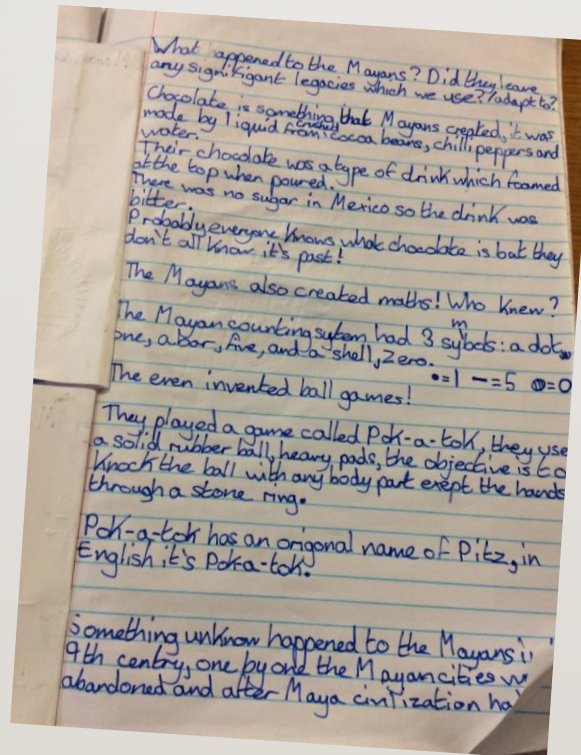 What appened to the Mayans? Did they leave
any signifigant legacies which we use?/adapt to?
Chocolate is something that Mayans created, it was
made by liquid from crushed cocoa beans, chilli peppers and
water.
Their chocolate was a type of drink which foamed
at the top when poured.
There was no sugar in Mexico so the drink was
bitter.
Probably everyone knows what chocolate is but they
don't all know it's past!
The Mayans also created maths! Who knew?
The Mayan counting sytem had 3 symbols: a dot,
one, a bar, five, and a shell, zero.
•=1 —=5 =0
The even invented ball games!
They played a game called Pok-a-tok, they use
a solid rubber ball, heavy pads, the objective is to
knock the ball with any body part exept the hands
through a stone ring.
Pok-a-tok has an origonal name of Pitz, in
English it's Pok-a-tok.
Something unknow happened to the Mayans
9th centry, one by one the Mayan cities
abandoned and after Maya civilization